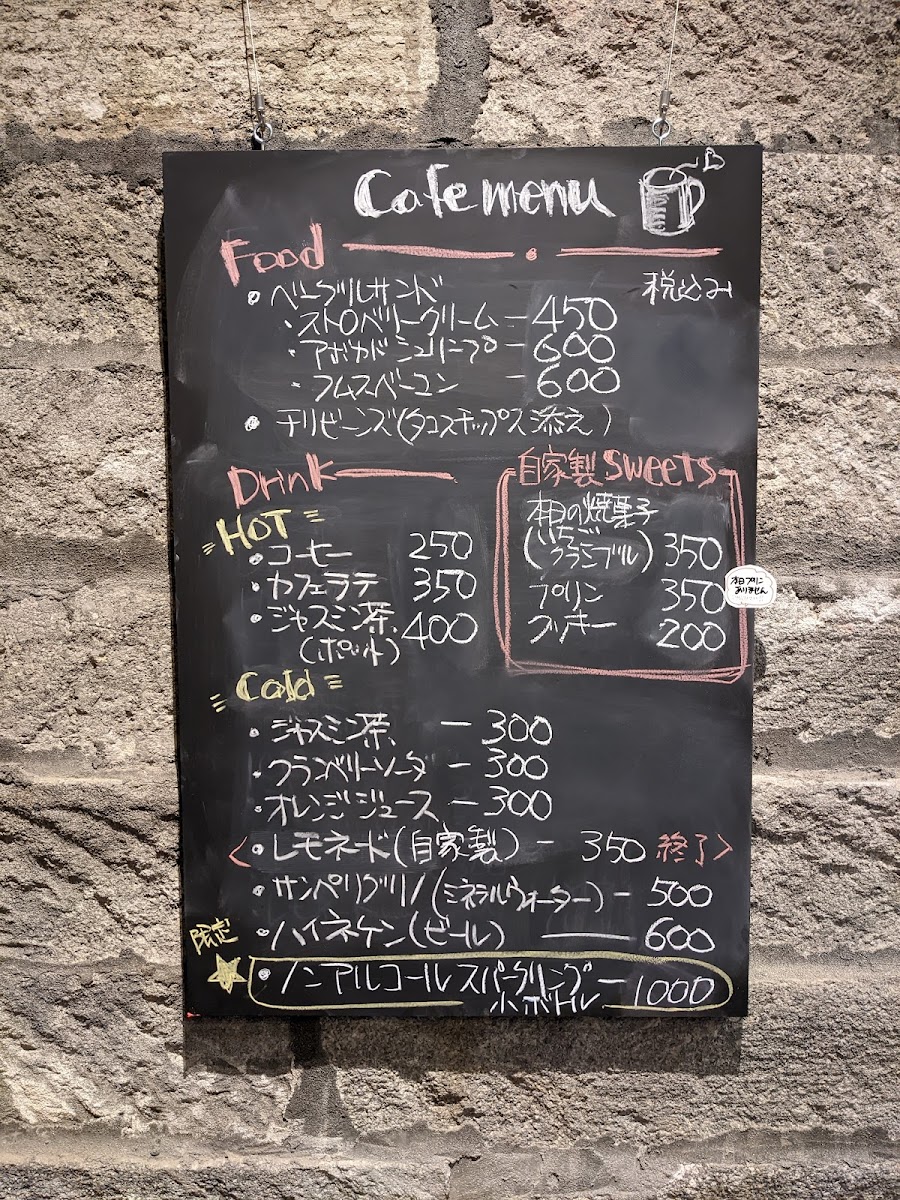 Cafe menu
Food
税込み
・ベーグルサンド
・ストロベリークリーム − 450
・アボカドシュリンプ − 600
・フムスベーコン − 600
・チリビーンズ(タコスチップス添え)
Drink
HOT
・コーヒー 250
・カフェラテ 350
・ジャスミン茶 400
(ポット)
自家製 Sweets
本日の焼菓子
(いちご
クランブル) 350
プリン 350
クッキー 200
本日プリン
ありません
Cold
・ジャスミン茶 − 300
・クランベリーソーダ − 300
・オレンジジュース − 300
<・レモネード(自家製) − 350 終了>
・サンペリグリノ(ミネラルウォーター) − 500
・ハイネケン(ビール) − 600
限定
★・ノンアルコールスパークリング − 1000
小ボトル